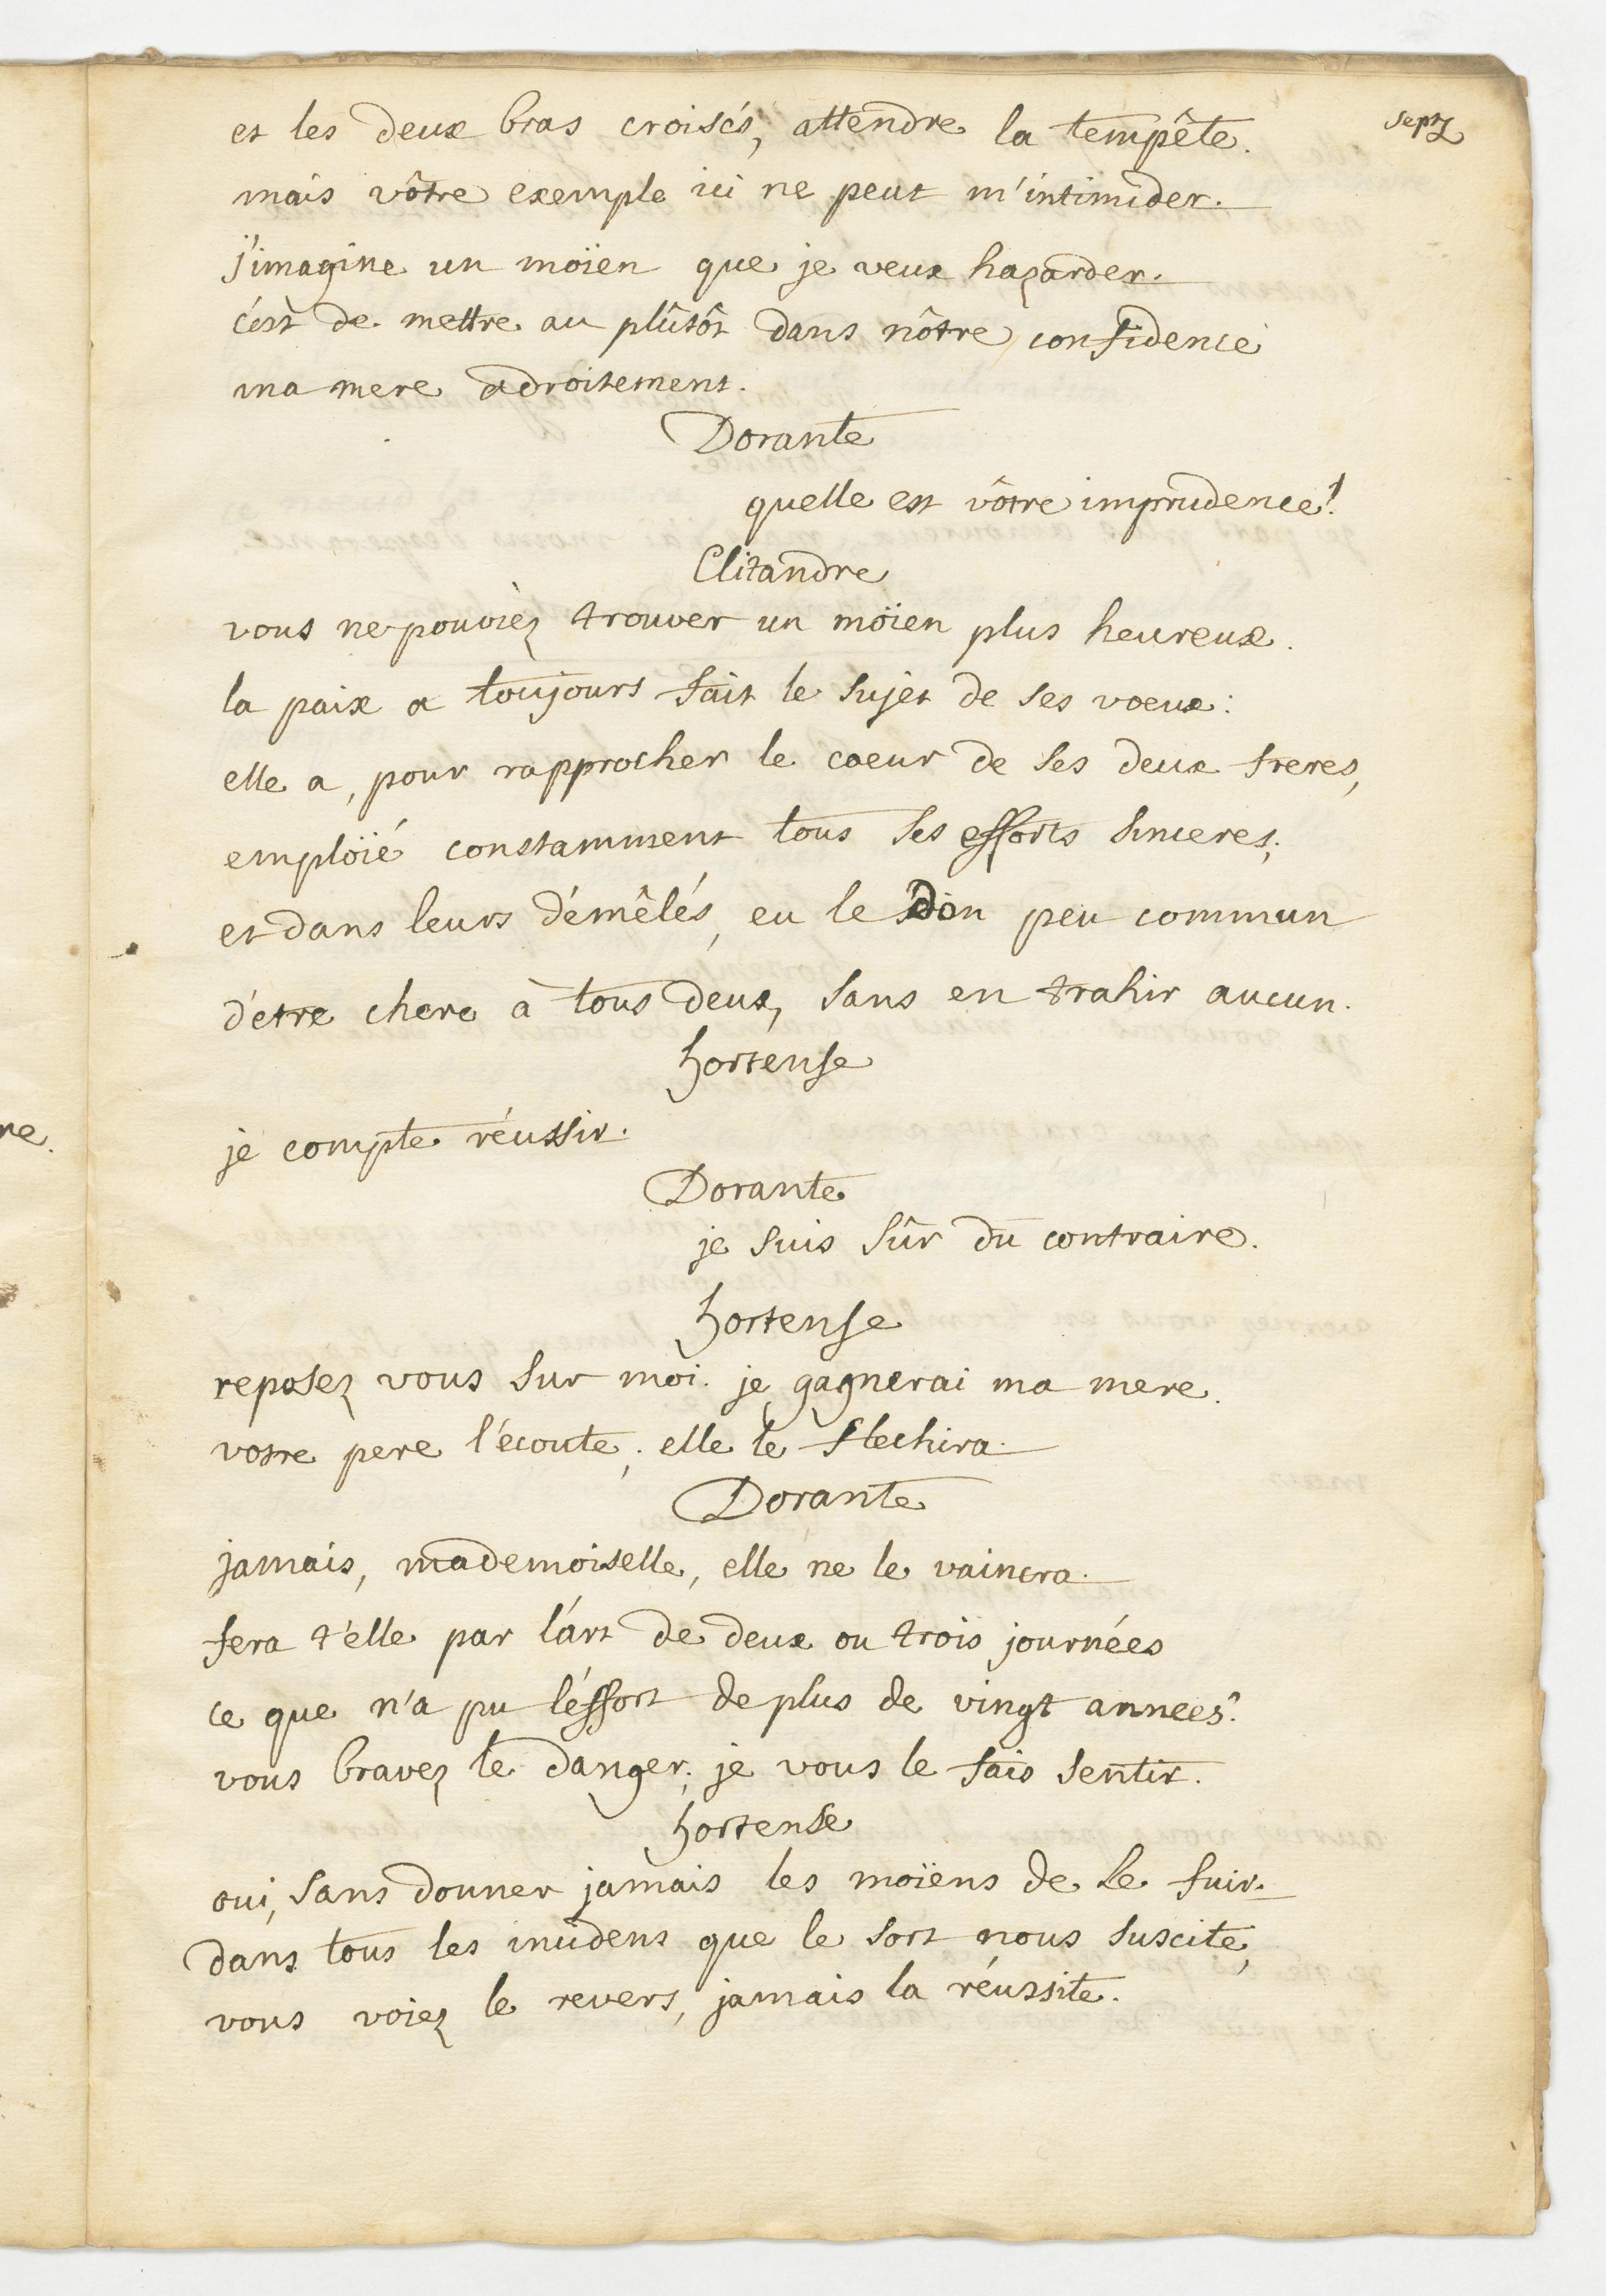 sept
et les deux bras croisés, attendre la tempête.
mais vôtre exemple ici ne peut m'intimider.
j'imagine un moïen que je veux hazarder.
c'est de mettre au plûtôt dans nôtre confidence
ma mere adroitement.
Dorante
quelle est vôtre imprudence!
Clitandre
vous ne pouviez trouver un moïen plus heureux.
la paix a toujours fait le sujet de ses voeux:
elle a, pour rapprocher le coeur de ses deux freres,
emploïé constamment tous ses efforts sinceres;
et dans leurs démêlés, eu le don peu commun
d'etre chere à tous deux, sans en trahir aucun.
hortense
je compte réussir.
Dorante
je suis sûr du contraire.
hortense
reposez vous sur moi. je gagnerai ma mere.
votre pere l'écoute; elle le flechira.
Dorante
jamais, mademoiselle, elle ne le vaincra.
fera t'elle par l'art de deux ou trois journées
ce que n'a pu l'éffort de plus de vingt annees?
vous bravez le danger; je vous le fais sentir.
hortense
oui, sans donner jamais les moïens de le fuir.
dans tous les incidens que le sort nous suscite,
vous voiez le revers, jamais la réussite.
re.